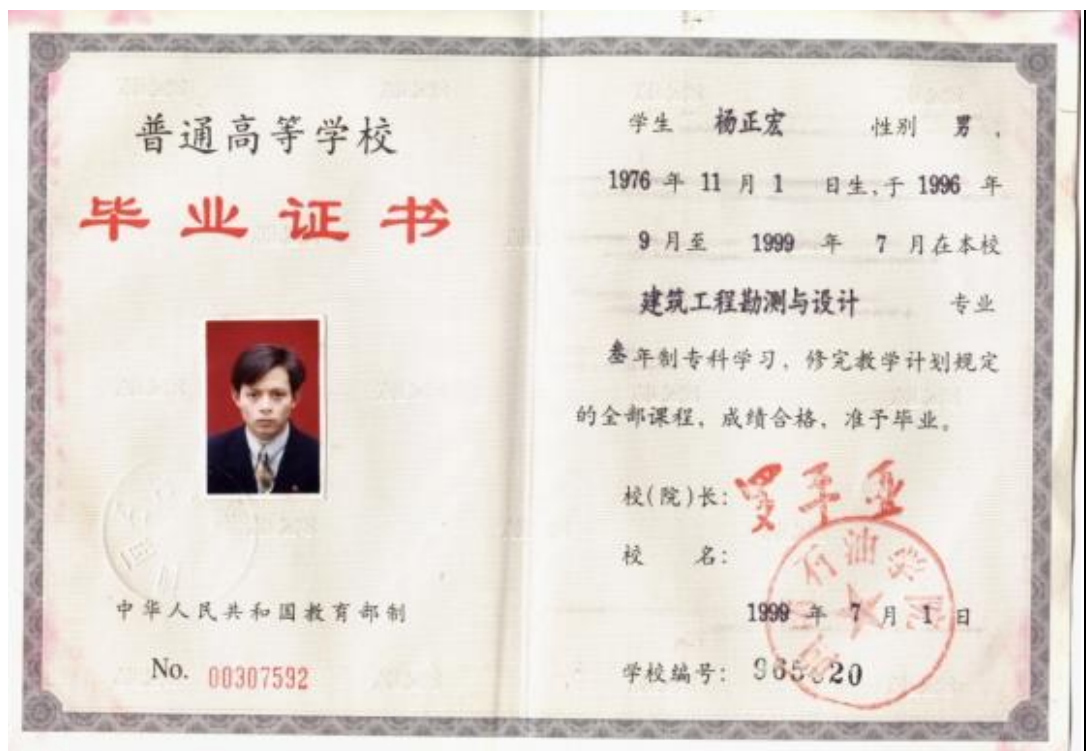 普通高等学校
毕业证书
中华人民共和国教育部制
No. 00307592
学生 杨正宏 性别 男，
1976 年 11 月 1 日生，于 1996 年
9 月至 1999 年 7 月在本校
建筑工程勘测与设计 专业
叁年制专科学习，修完教学计划规定
的全部课程，成绩合格，准予毕业。
校(院)长：罗平亚
校 名：
石油学院
1999 年 7 月 1 日
学校编号：